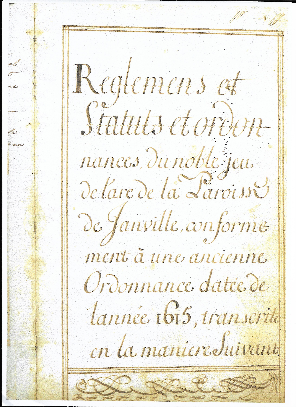 Reglemens et
Statuts et ordon-
nances, du noble Jeu
de l'arc de la Paroisse
de Janville, conforme
ment à une ancienne
Ordonnance datée de
lannée 1615, transcrite
en la maniere Suivant